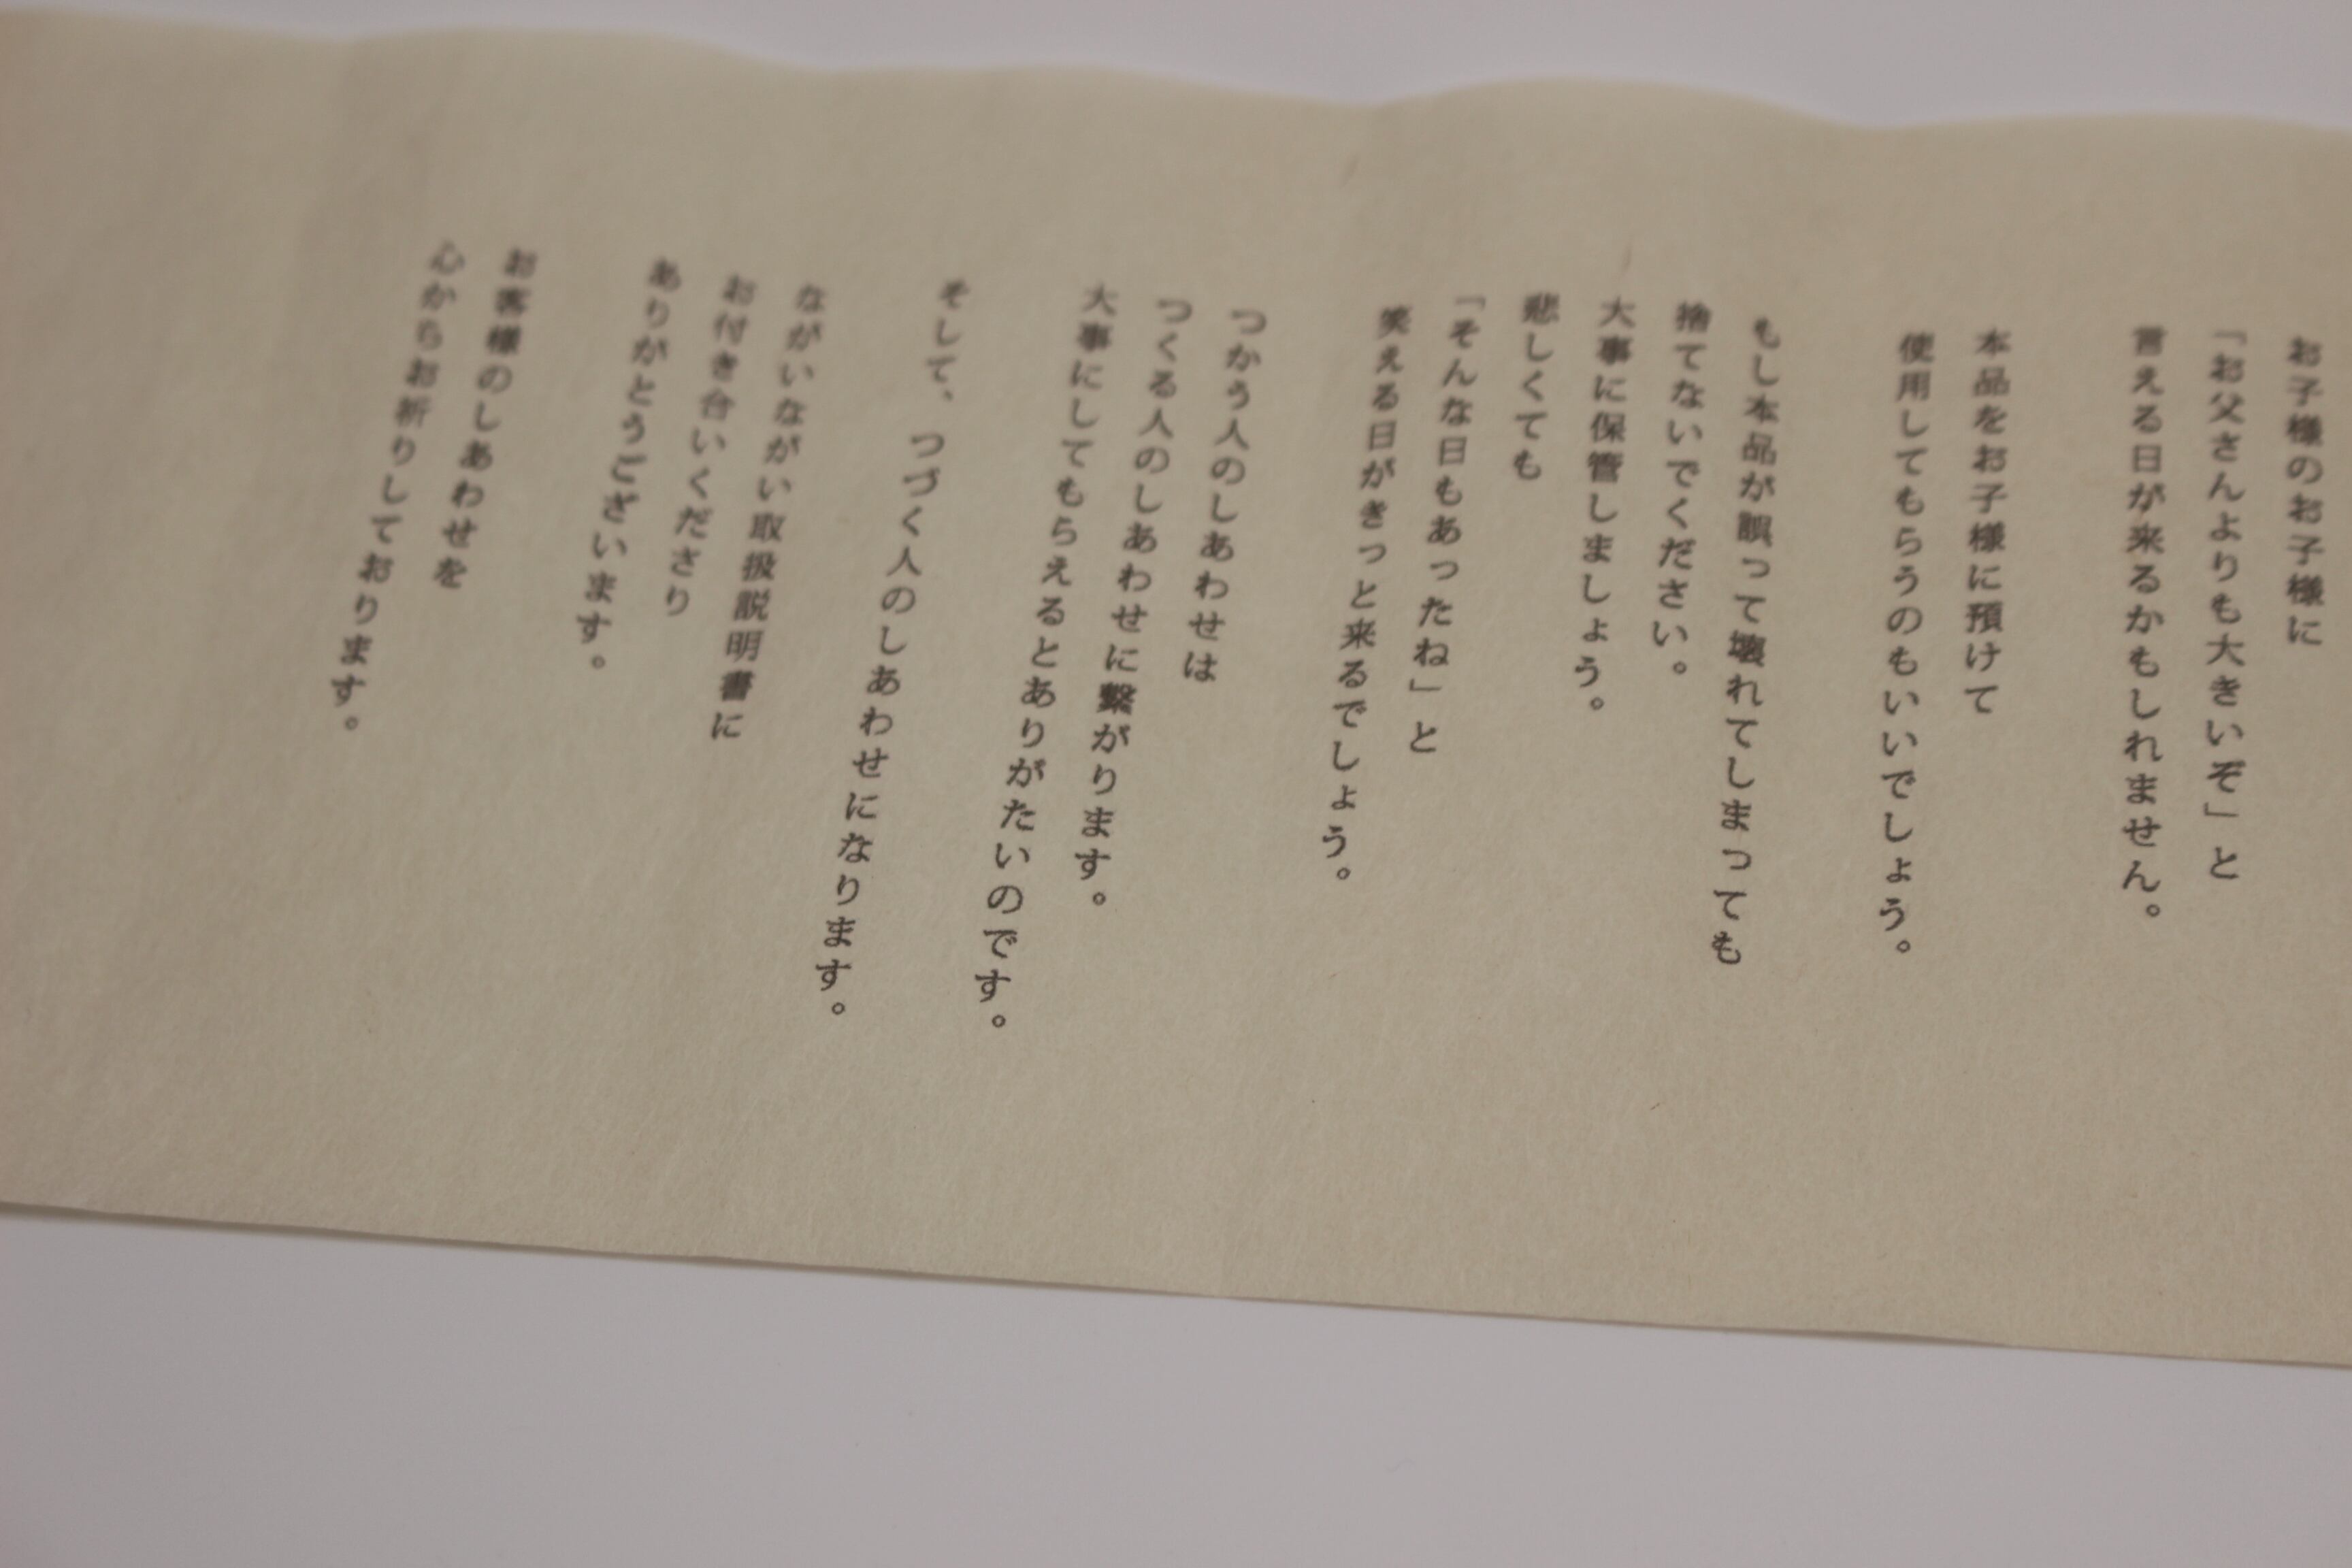 お子様のお子様に
「お父さんよりも大きいぞ」と
言える日が来るかもしれません。
本品をお子様に預けて
使用してもらうのもいいでしょう。
もし本品が誤って壊れてしまっても
捨てないでください。
大事に保管しましょう。
悲しくても
「そんな日もあったね」と
笑える日がきっと来るでしょう。
つかう人のしあわせは
つくる人のしあわせに繋がります。
大事にしてもらえるとありがたいのです。
そして、つづく人のしあわせになります。
ながいながい取扱説明書に
お付き合いくださり
ありがとうございます。
お客様のしあわせを
心からお祈りしております。